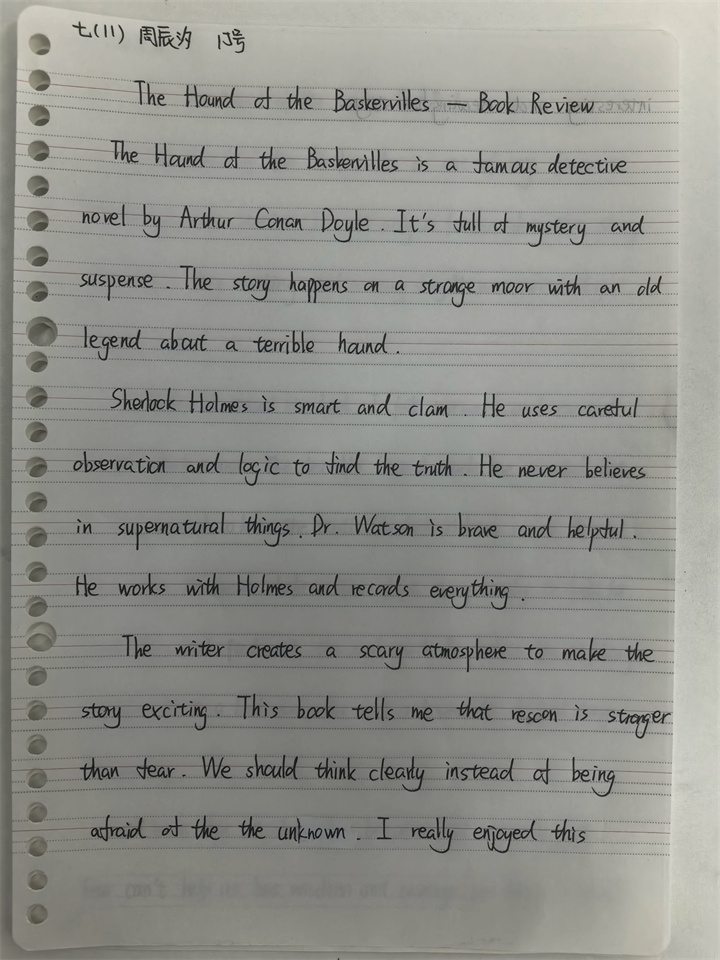 七(11) 周辰汐 13号
The Hound of the Baskervilles — Book Review
The Hound of the Baskervilles is a famous detective
novel by Arthur Conan Doyle. It's full of mystery and
suspense. The story happens on a strange moor with an old
legend about a terrible hound.
Sherlock Holmes is smart and clam. He uses careful
observation and logic to find the truth. He never believes
in supernatural things. Dr. Watson is brave and helpful.
He works with Holmes and records everything.
The writer creates a scary atmosphere to make the
story exciting. This book tells me that rescon is stronger
than fear. We should think clearly instead of being
afraid of the the unknown. I really enjoyed this